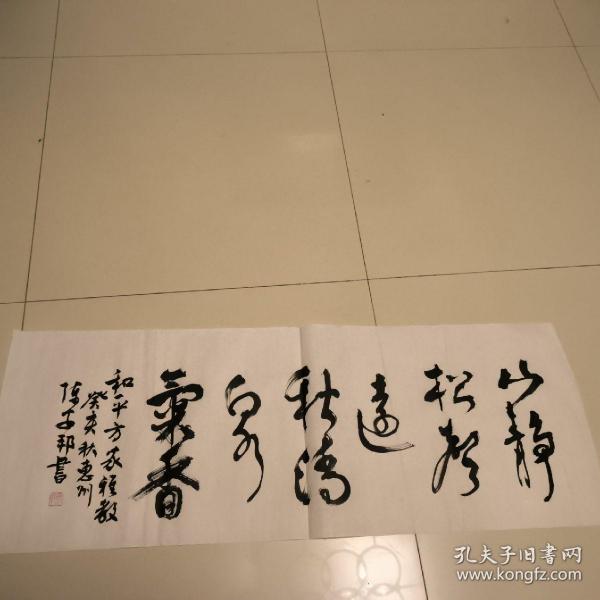 山靜
松聲
遠
秋清
泉
氣香
和平方家雅教
癸亥秋惠州
陳子邦書
孔夫子旧书网
www.kongfz.com